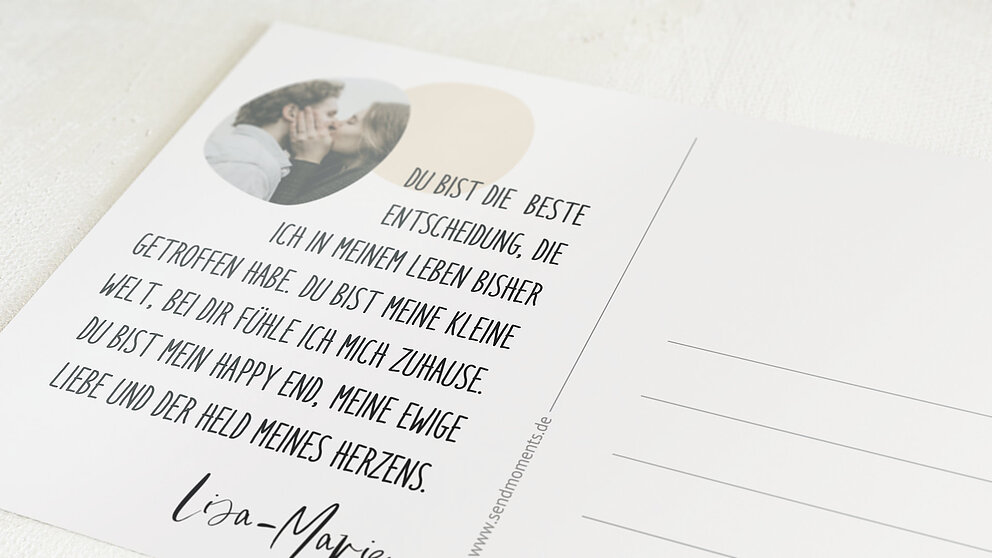 DU BIST DIE BESTE
ENTSCHEIDUNG, DIE
ICH IN MEINEM LEBEN BISHER
GETROFFEN HABE. DU BIST MEINE KLEINE
WELT, BEI DIR FÜHLE ICH MICH ZUHAUSE.
DU BIST MEIN HAPPY END, MEINE EWIGE
LIEBE UND DER HELD MEINES HERZENS.
Lisa-Marie
www.sendmoments.de